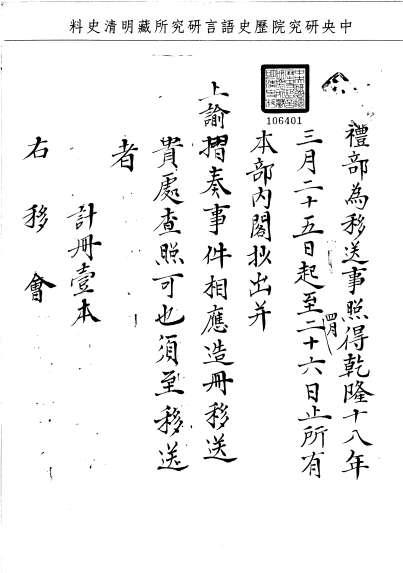 中央研究院歷史語言研究所藏明清史料
106401
禮部為移送事照得乾隆十八年
三月二十五日起至四月二十六日止所有
本部內閣抄出并
上諭摺奏事件相應造冊移送
貴處查照可也須至移送
者
計冊壹本
右移會